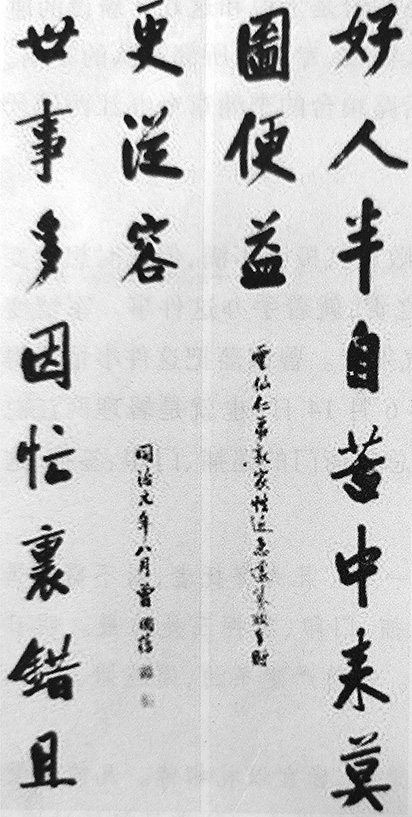 好人半自苦中来莫
圖便益
雲仙仁弟親家性近急遽
世事多因忙裏錯且
更從容
同治元年八月曾國藩